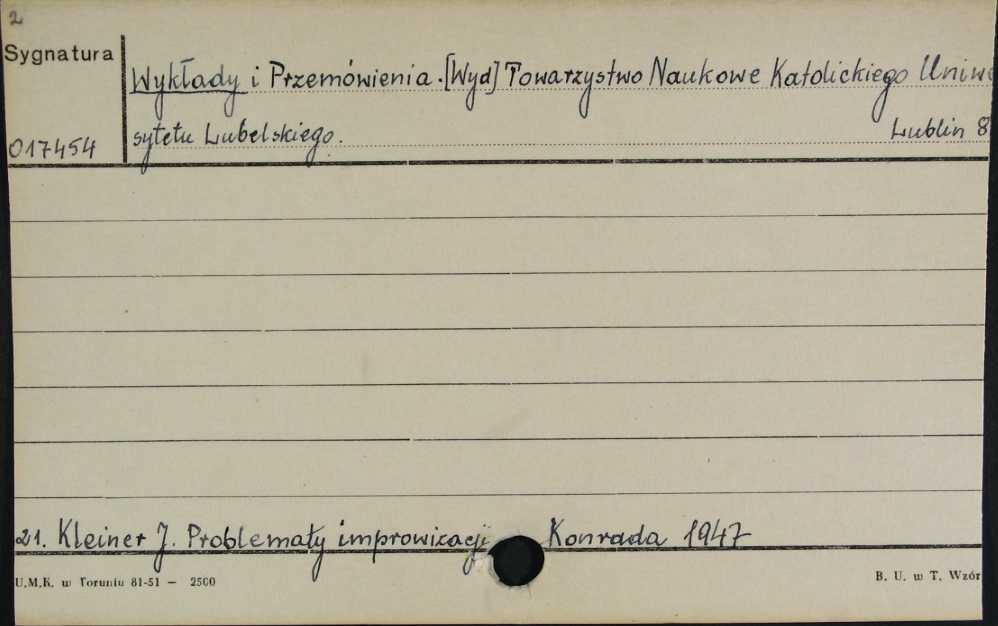 2
Sygnatura
Wykłady i Przemówienia. [Wyd] Towarzystwo Naukowe Katolickiego Uniwe
sytetu Lubelskiego. Lublin 8
017454
21. Kleiner J. Problematy improwizacji Konrada 1947
U.M.K. w Toruniu 81-51 — 2500 B. U. w T. Wzór